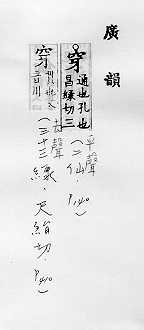 廣韻
穿 通也孔也
昌緣切三
平聲
(二仙·P140)
穿
去聲
(三十三線·尺絹切·P410)